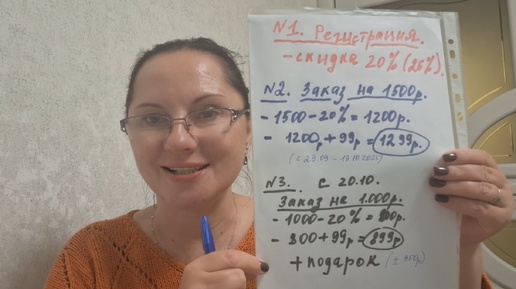 №1. Регистрация.
- скидка 20% (25%).
№2. Заказ на 1500р.
- 1500 - 20% = 1200р.
- 1200р + 99р = 1299р.
№3. с 20.10.
Заказ на 1.000р.
- 1000 - 20% = 800р.
- 800 + 99р = 899р
+ подарок